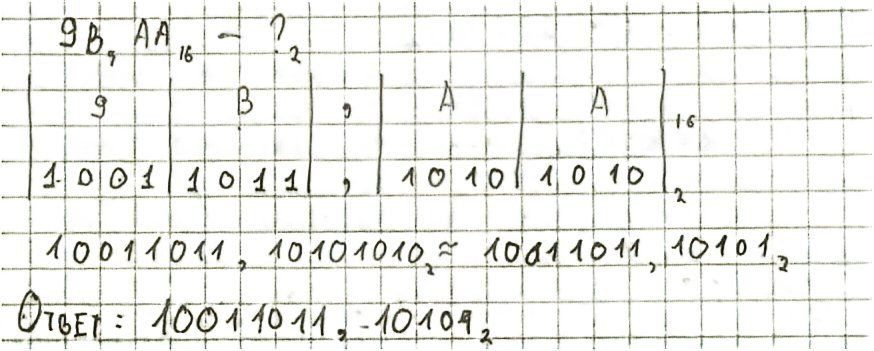 9B,AA₁₆ — ?₂
9 | B | , | A | A |₁₆
1001 | 1011 | , | 1010 | 1010 |₂
10011011,10101010₂ ≈ 10011011,10101₂
Ответ: 10011011,10101₂